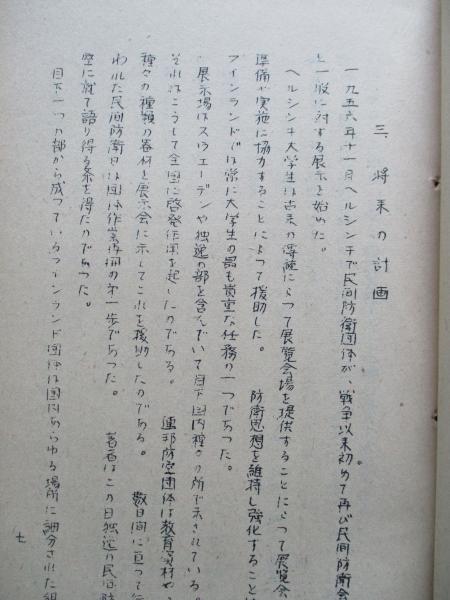 三、将来の計画
一九五六年十一月ヘルシンキで民间防衛团体が、戦争以来初めて再び民间防衛会
と一般に対する展示を始めた。
ヘルシンキ大学生は古来の によって展覧会場を提供することによって展覧会
準備や実施に協力することによって援助した。 防衛思想を維持し強化することは
フインランドでは常に大学生の最も貴重な任務の一つであった。
展示場はスウェーデンや独逸の部を含んでいて目下国内種々の所で示されている。
それはこうして全国に啓発作用を起したのである。 連邦防空団体は教育資材や
種々の種類の器材を展示会に示してこれを援助したのである。 数日间に亘って行
われた民间防衛日は团体作業再開の第一歩であった。 著者はこの日独逸の民间防
空に就て語り得る栄を得たのであった。
目下一つの部から成っているフィンランド团体は国内あらゆる場所に細分された組
七